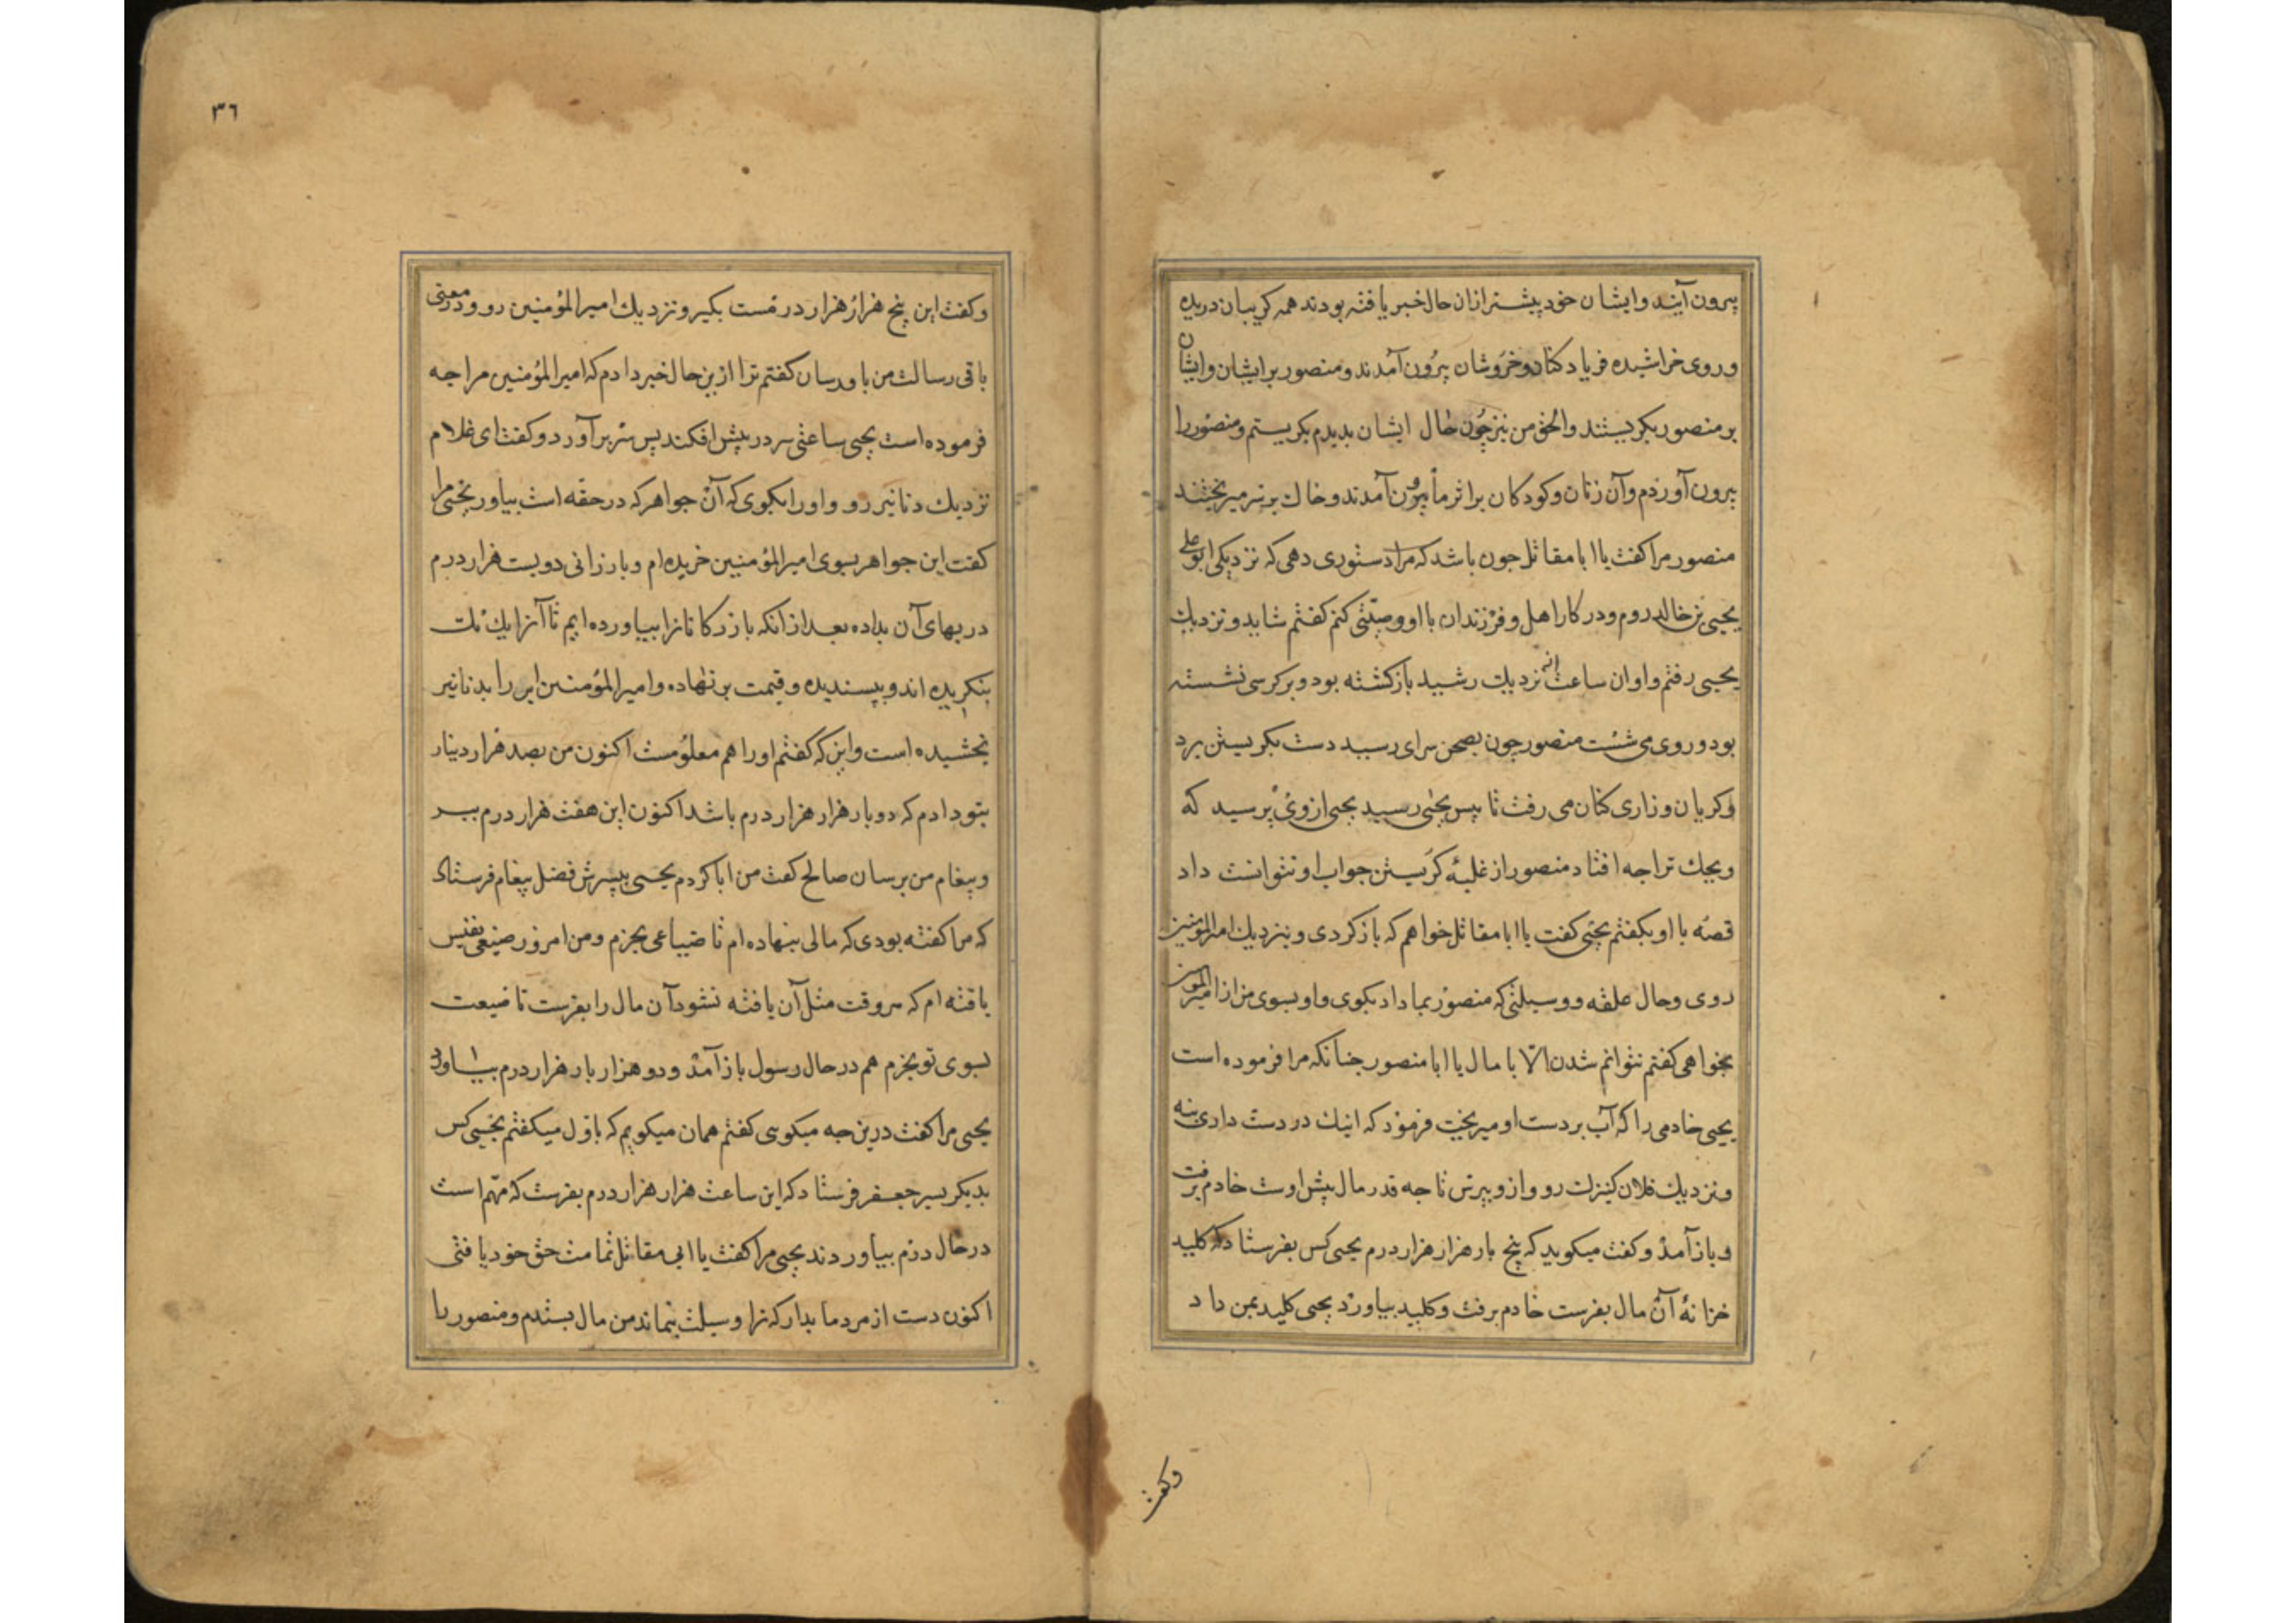 پیرون آیند وایشان خود پیشتر ازان حال خبر یافته بودند همه کریبان دریده
وروی خراشیده فریاد کنان وخروشان پیرون آمدند ومنصور برایشان وایشان
بر منصور بکریستند والحق من نیز چون حال ایشان بدیدم بکریستم ومنصور را
پیرون آوردم وآن زنان وکودکان براثر ما پیرون آمدند وخاک برسر میریختند
منصور مرا کفت یا ابا مقاتل جون باشد که مرا دستوری دهی که نزدیک ابو علی
یحیی بن خالد روم ودر کار اهل وفرزندان با او وصیتی کنم کفتم شاید ونزدیک
یحیی رفتم واو ان ساعت از نزدیک رشید بازکشته بود وبر کرسی نشسته
بود وروی می شست منصور چون بصحن سرای رسید دست بکریستن برد
وکریان وزاری کنان می رفت تا پیش یحیی رسید یحیی ازوی پرسید که
ویحک ترا جه افتاد منصور از غلبهٔ کریستن جواب او نتوانست داد
قصه با او بکفتم یحیی کفت یا ابا مقاتل خواهم که باز کردی وبنزدیک امیرالمومنین
روی وحال علقه ووسیلتی که منصور بما دارد بکوی واو بسوی من از امیرالمومنین
بخواهی کفتم نتوانم شدن الا با مال یا ابا منصور جنانکه مرا فرموده است
یحیی خادمی را که آب بر دست او میریخت فرمود که اینک در دست داری بنه
ونزدیک فلان کنیزک رو وازو بپرس تا جه قدر مال پیش اوست خادم برفت
وباز آمد وکفت میکوید که پنج بار هزار هزار درم یحیی کس بفرستاد که کلید
خزانهٔ آن مال بفرست خادم برفت وکلید بیاورد یحیی کلید بمن داد
وکفت
٣٦
وکفت این پنج هزار هزار درمست بکیر ونزدیک امیرالمؤمنین رو ودر معنی
باقی رسالت من باو رسان کفتم ترا ازین حال خبر دادم که امیرالمؤمنین مرا جه
فرموده است یحیی ساعتی سر در پیش افکند پس سر برآورد وکفت ای غلام
نزدیک دنانیر رو واورا بکوی که آن جواهر که در حقه است بیاور یحیی مرا
کفت این جواهر بسوی امیرالمؤمنین خریده ام وبارزانی دویست هزار درم
در بهای آن بداده بعد از آنکه بازرکانانرا بیاورده ایم تا آنرا یک یک
بنکریده اند وبپسندیده وقیمت برنهاده وامیرالمؤمنین این را بدنانیر
بخشیده است واین که کفتم اورا هم معلومست اکنون من بصد هزار دینار
بتو دادم که دو بار هزار هزار درم باشد اکنون این هفت هزار درم ببر
وپیغام من برسان صالح کفت من ابا کردم یحیی بپسرش فضل پیغام فرستاد
که مرا کفته بودی که مالی بنهاده ام تا ضیاعی بخرم ومن امروز ضیعتی نفیس
یافته ام که هر وقت مثل آن یافته نشود آن مال را بفرست تا ضیعت
بسوی تو بخرم هم در حال رسول باز آمد ودو هزار بار هزار درم بیاورد
یحیی مرا کفت درین جه میکویی کفتم همان میکویم که باول میکفتم یحیی کس
بدیکر پسر جعفر فرستاد که این ساعت هزار هزار درم بفرست که مهم است
در حال درم بیاوردند یحیی مرا کفت یا ابی مقاتل تمامت حق خود یافتی
اکنون دست از مرد ما بدار که ترا وسیلت بنماند من مال بستدم ومنصور را